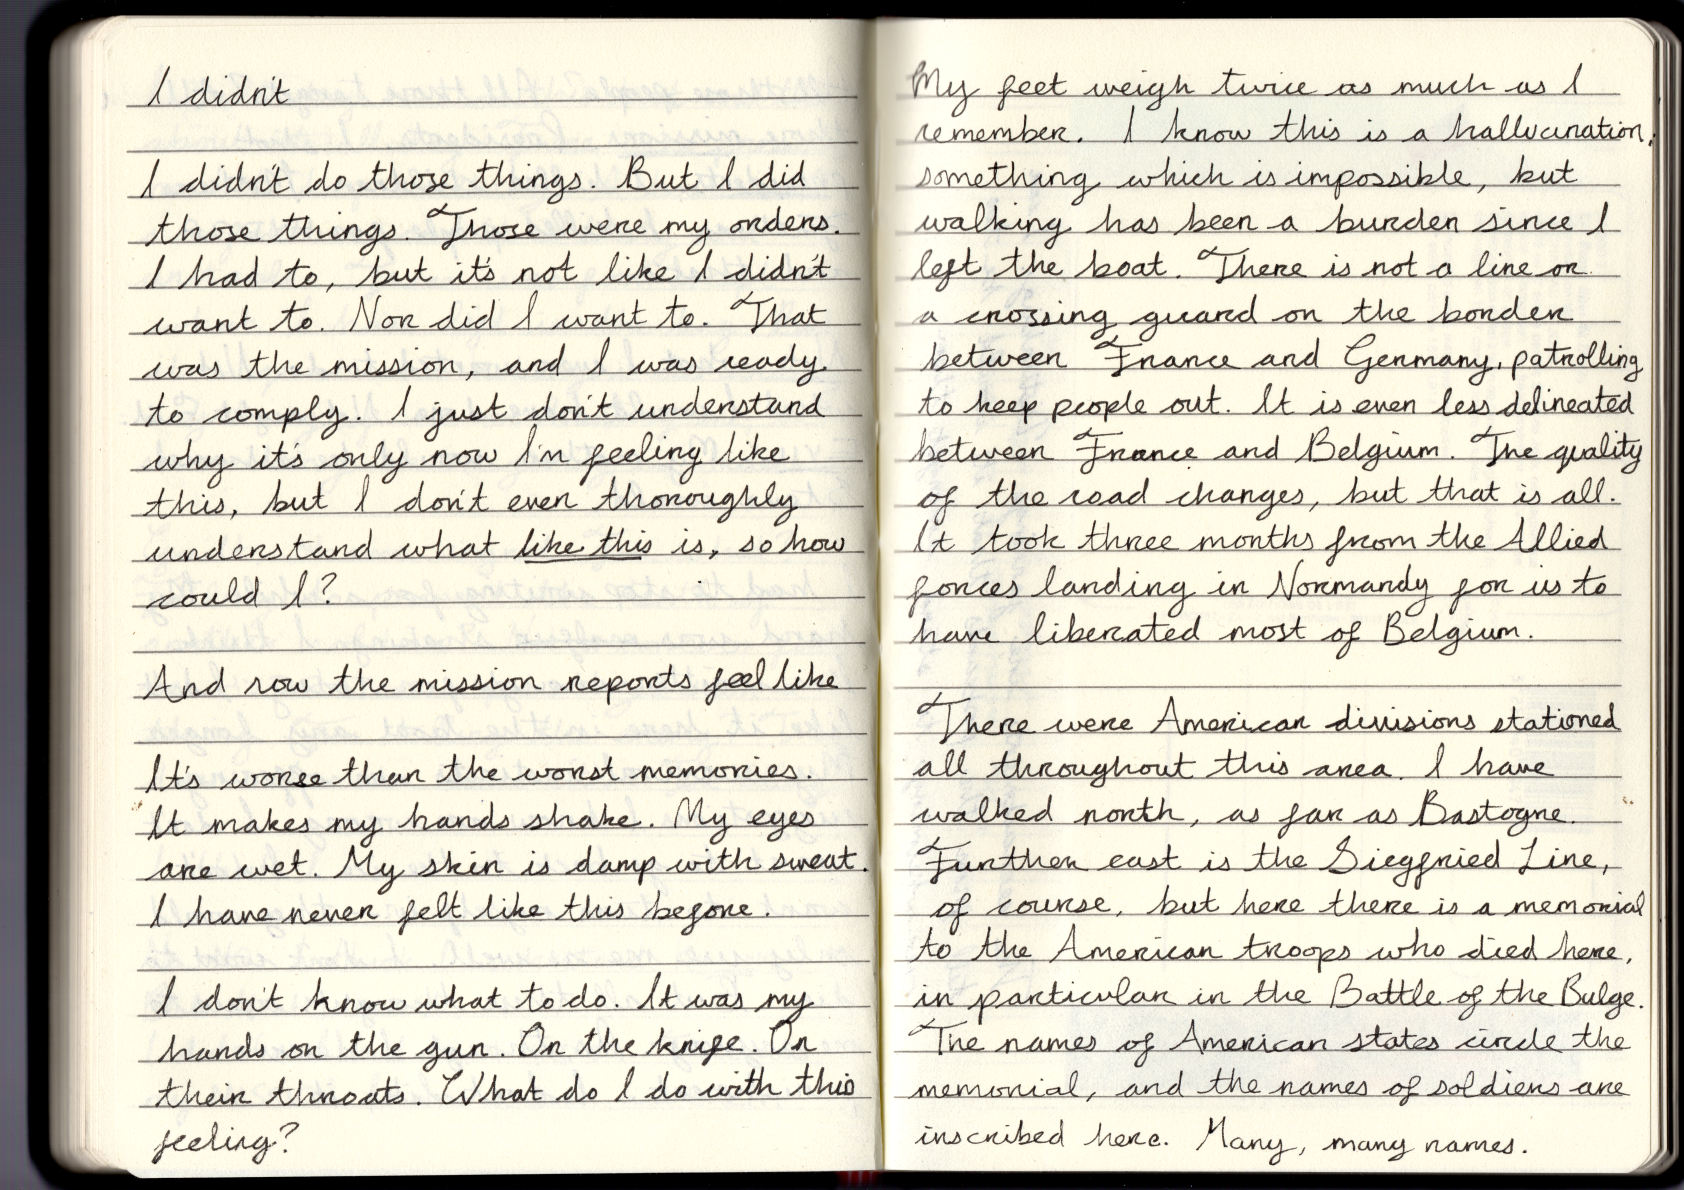 I didn't
I didn't do those things. But I did
those things. Those were my orders.
I had to, but it's not like I didn't
want to. Nor did I want to. That
was the mission, and I was ready
to comply. I just don't understand
why it's only now I'm feeling like
this, but I don't even thoroughly
understand what like this is, so how
could I?
And now the mission reports feel like
It's worse than the worst memories.
It makes my hands shake. My eyes
are wet. My skin is damp with sweat.
I have never felt like this before.
I don't know what to do. It was my
hands on the gun. On the knife. On
their throats. What do I do with this
feeling?
My feet weigh twice as much as I
remember. I know this is a hallucination,
something which is impossible, but
walking has been a burden since I
left the boat. There is not a line or
a crossing guard on the border
between France and Germany, patrolling
to keep people out. It is even less delineated
between France and Belgium. The quality
of the road changes, but that is all.
It took three months from the Allied
forces landing in Normandy for us to
have liberated most of Belgium.
There were American divisions stationed
all throughout this area. I have
walked north, as far as Bastogne.
Further east is the Siegfried Line,
of course, but here there is a memorial
to the American troops who died here,
in particular in the Battle of the Bulge.
The names of American states circle the
memorial, and the names of soldiers are
inscribed here. Many, many names.